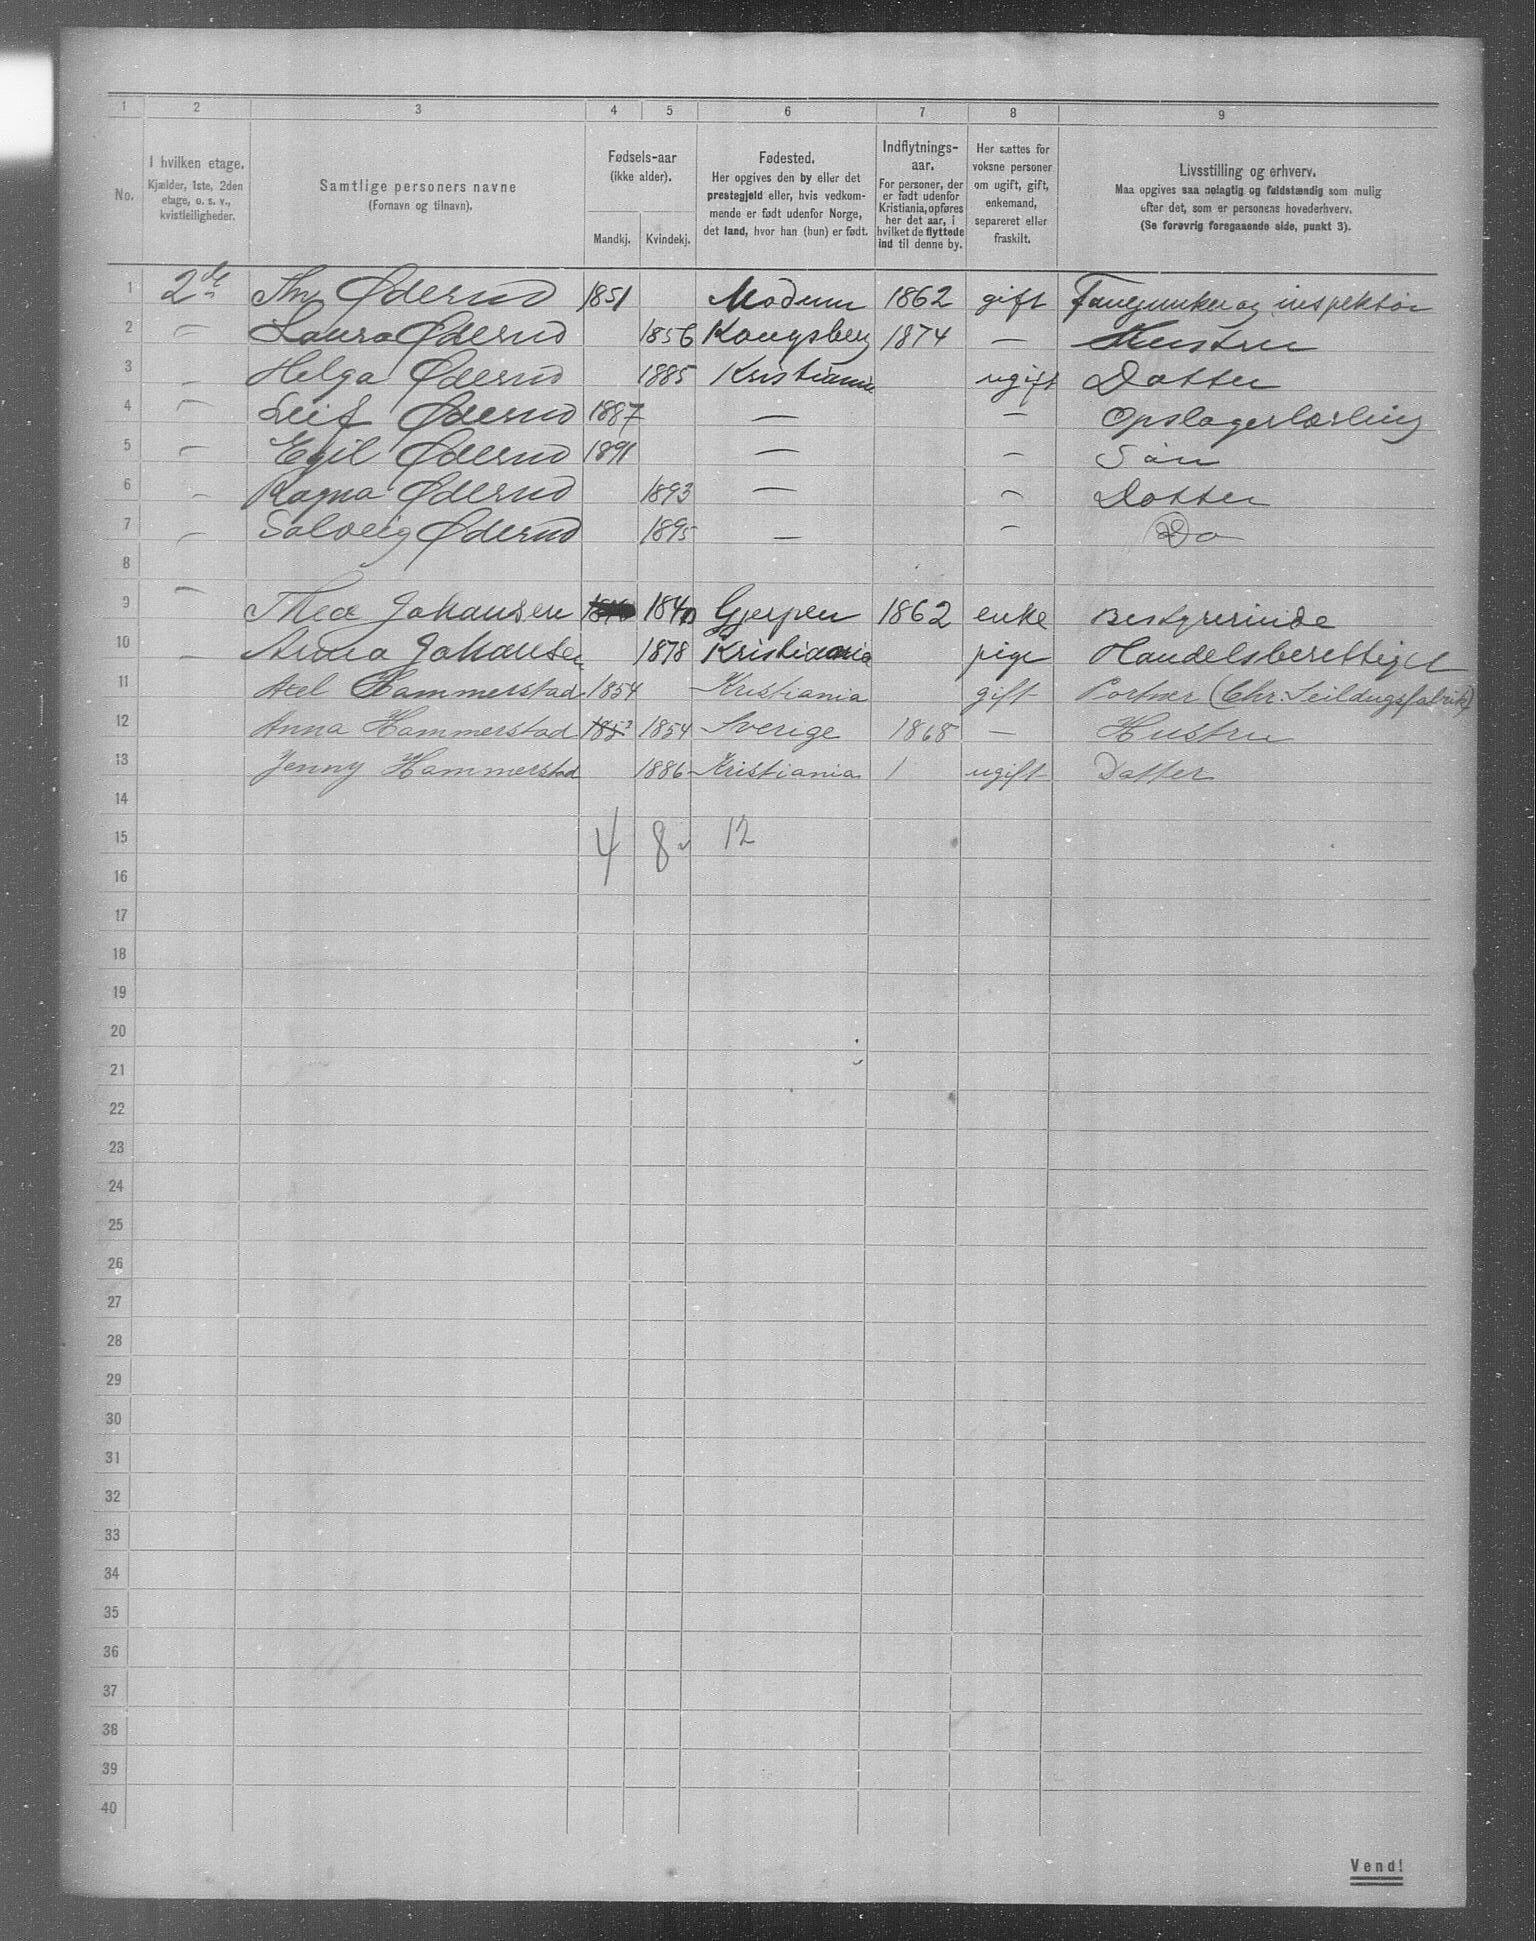 1 2 3 4 5 6 7 8 9
No.
I hvilken etage.
Kjælder, 1ste, 2den
etage, o. s. v.,
kvistleiligheder.
Samtlige personers navne
(Fornavn og tilnavn).
Fødsels-aar
(ikke alder).
Mandkj. Kvindekj.
Fødested.
Her opgives den by eller det
prestegjeld eller, hvis vedkom-
mende er født udenfor Norge,
det land, hvor han (hun) er født.
Indflytnings-
aar.
For personer, der
er født udenfor
Kristiania, opføres
her det aar, i
hvilket de flyttede
ind til denne by.
Her sættes for
voksne personer
om ugift, gift,
enkemand,
separeret eller
fraskilt.
Livsstilling og erhverv.
Maa opgives saa nøiagtig og fuldstændig som mulig
efter det, som er personens hovederhverv.
(Se forøvrig foregaaende side, punkt 3).
1 2de Øderud 1851 Modum 1862 gift og inspektør
2 — Laura Øderud 1856 Kongsberg 1874 — Hustru
3 — Helga Øderud 1885 Kristiania ugift Datter
4 — Leif Øderud 1887 — — Opslagerlærling
5 — Egil Øderud 1891 — — Søn
6 — Ragna Øderud 1893 — — Datter
7 — Solveig Øderud 1895 — — Do
8
9 — Thea Johansen 1840 Gjerpen 1862 enke Bestyrerinde
10 — Anna Johansen 1878 Kristiania pige Handelsberettiget
11 Axel Hammerstad 1854 Kristiania gift Portner (Chr. Seildugsfabrik)
12 Anna Hammerstad 1854 Sverige 1868 — Hustru
13 Jenny Hammerstad 1886 Kristiania / ugift Datter
14
15 4 8 12
16
17
18
19
20
21
22
23
24
25
26
27
28
29
30
31
32
33
34
35
36
37
38
39
40
Vend!